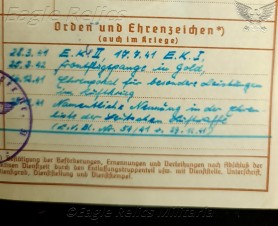 Eagle Relics
Orden und Ehrenzeichen
(auch im Kriege)
28.3.41 E.K. II 18.4.41 E.K. I,
25.2.42 Frontflugspange in Gold,
.41 Ehrenpokal für besondere Leistungen
im Luftkrieg
Namentliche Nennung in der
der Deutschen Luftwaffe
Bestätigung der Beförderungen, Ernennungen und Verleihungen nach Abschluß der
Dienstzeit durch den Entlassungstruppenteil usw. mit Dienststelle, Unterschrift,
Dienstgrad, Dienststellung und Dienststempel.
Eagle Relics Militaria